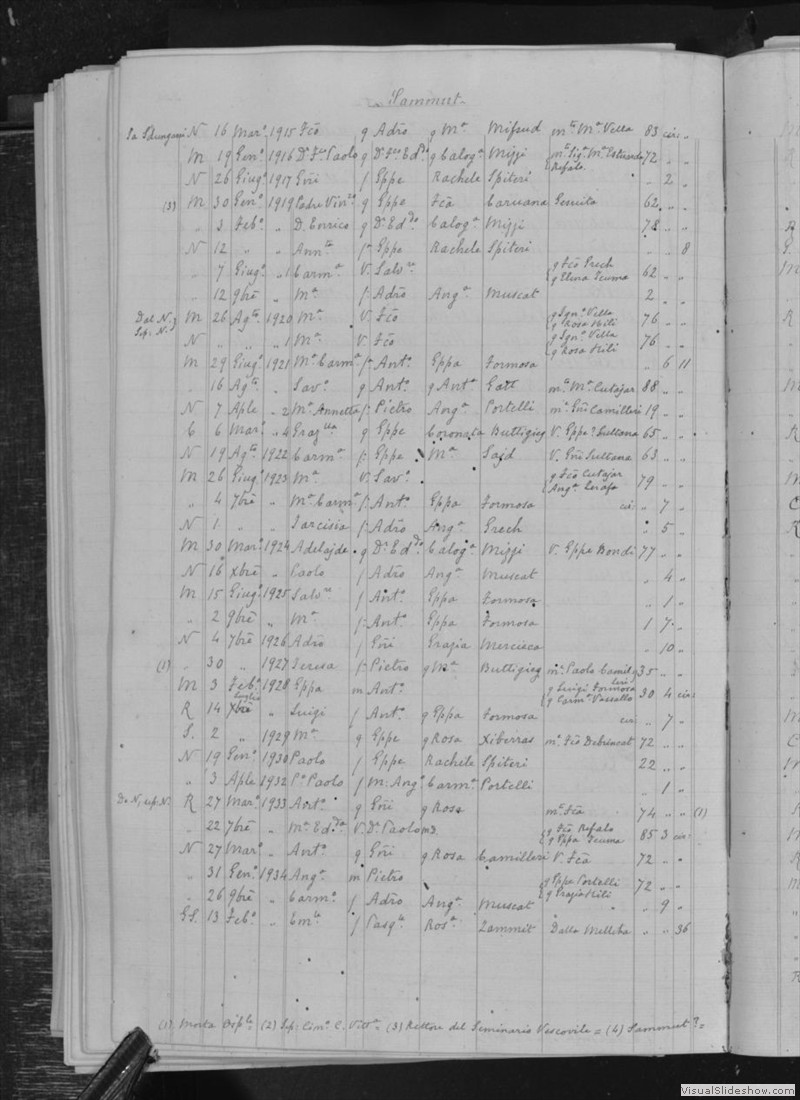 Sammut
N 16 Mar.º 1915 Fcō g Adrō g Mª Mifsud Mª Vella 83 cir: "
M 19 Genº 1916 Dr Fco Paolo g Dr Fco Edᵈº g Calogª Mizzi 72 " "
N 26 Giugº 1917 Gñi f Gppe Rachele Spiteri " 2 "
(3) M 30 Genº 1919 Padre Vinzº g Gppe Fcā Caruana Gesuita 62 " "
" 3 Febº " D. Enrico g Dr Edᵈº Calogª Mizzi 78 " "
N 12 " " Annᵗª f Gppe Rachele Spiteri " " 8
" 7 Giugº " Carmª V. Salvʳᵉ g Fcō Grech g Elena Scuma 62 " "
" 12 9brē " Mª f Adrō Angª Muscat 2 " "
Dal N. Sep: N. M 26 Agᵗº 1920 Mª V Fcō g Ignº Vella g Rosa Hili 76 " "
N " " " Mª V. Fcō g Ignº Vella g Rosa Hili 76 " "
M 29 Giugº 1921 Mª Carmª f Antº Gppa Formosa " 6 11
" 16 Agᵗº " Savº g Antº g Antª Gatt mª Mª Cutajar 88 " "
N 7 Aple " Mª Annetta f Pietro Angª Portelli mª Gñi Camilleri 19 " "
C 6 Marº " Grazˡˡª g Gppe Coronata Buttigieg V. Gppe Sultana 65 " "
N 19 Agᵗº 1922 Carmª f Gppe Mª Said V. Gñi Sultana 63 " "
M 26 Giugº 1923 Mª V. Savº g Fcō Cutajar Angª 79 " "
" 4 7brē " Mª Carmª f Antº Gppa Formosa cir: " 7 "
N 1 " " Tarcisia f Adrō Angª Grech " 5 "
M 30 Marº 1924 Adelajde g Dr Edᵈº Calogª Mizzi V. Gppe Bondì 77 " "
N 16 Xbrē " Paolo f Adrō Angª Muscat " 4 "
M 15 Giugº 1925 Salvʳᵉ f Antº Gppa Formosa " 1 "
" 2 9brē " Mª f Antº Gppa Formosa 1 7 "
N 4 7brē 1926 Adrō f Gñi Grazia Mercieca " 10 "
(1) " 30 " 1927 Teresa f Pietro g Mª Buttigieg mª Paolo Camilleri 35 " "
M 3 Febº 1928 Gppa m Antº g Luigi Formosa g Carmª Vassallo 30 4 cir:
R 14 Luglio " Luigi f Antº g Gppa Formosa cir: " 7 "
S. 2 " 1929 Mª g Gppe g Rosa Xiberras mª Fcō Debrincat 72 " "
N 19 Genº 1930 Paolo f Gppe Rachele Spiteri 22 " "
" 3 Aple 1932 Pº Paolo f M. Angº Carmª Portelli " 1 "
Da N. sep: N. R 27 Marº 1933 Antº g Gñi g Rosa mª Fcā 74 " " (1)
" 22 7brē " Mª Edᵈª V. Dr Paolo g Fcō Refalo g Gppa Scuma 85 3 cir:
N 27 Marº " Antº g Gñi g Rosa Camilleri V. Fcā 72 " "
" 31 Genº 1934 Angª m Pietro g Gppe Portelli g Grazia Hili 72 " "
" 26 9brē " Carmº f Adrō Angª Muscat " 9 "
GS. 13 Febº " Emˡᵃ f Pasqˡᵉ Rosª Zammit Dalla Melleha " " 36
(1) Morta Ospˡᵉ (2) Sep: Cimº C. Vittª (3) Rettore del Seminario Vescovile = (4) Sammut? =
VisualSlideshow.com